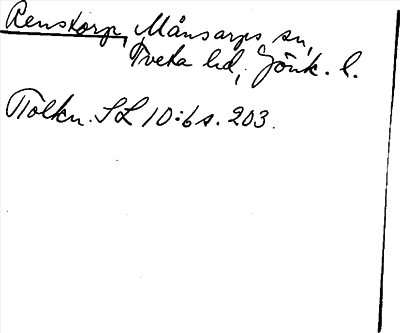 Renstorp, Månsarps sn,
Tveta hd, Jönk. l.
Tolkn. SL 10:6 s. 203.